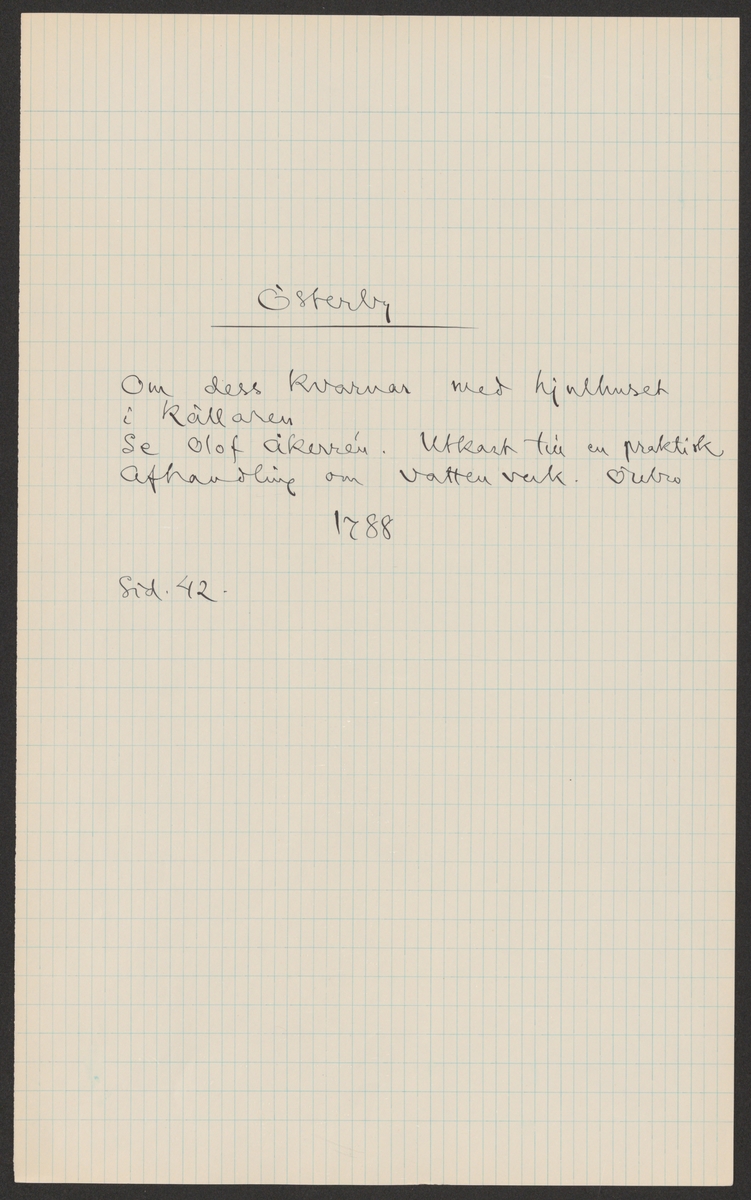 Österby
Om dess kvarnar med hjulhuset
i källaren
Se Olof Åkerrén. Utkast till en praktisk
Afhandling om vattenverk. Örebro
1788
Sid. 42.